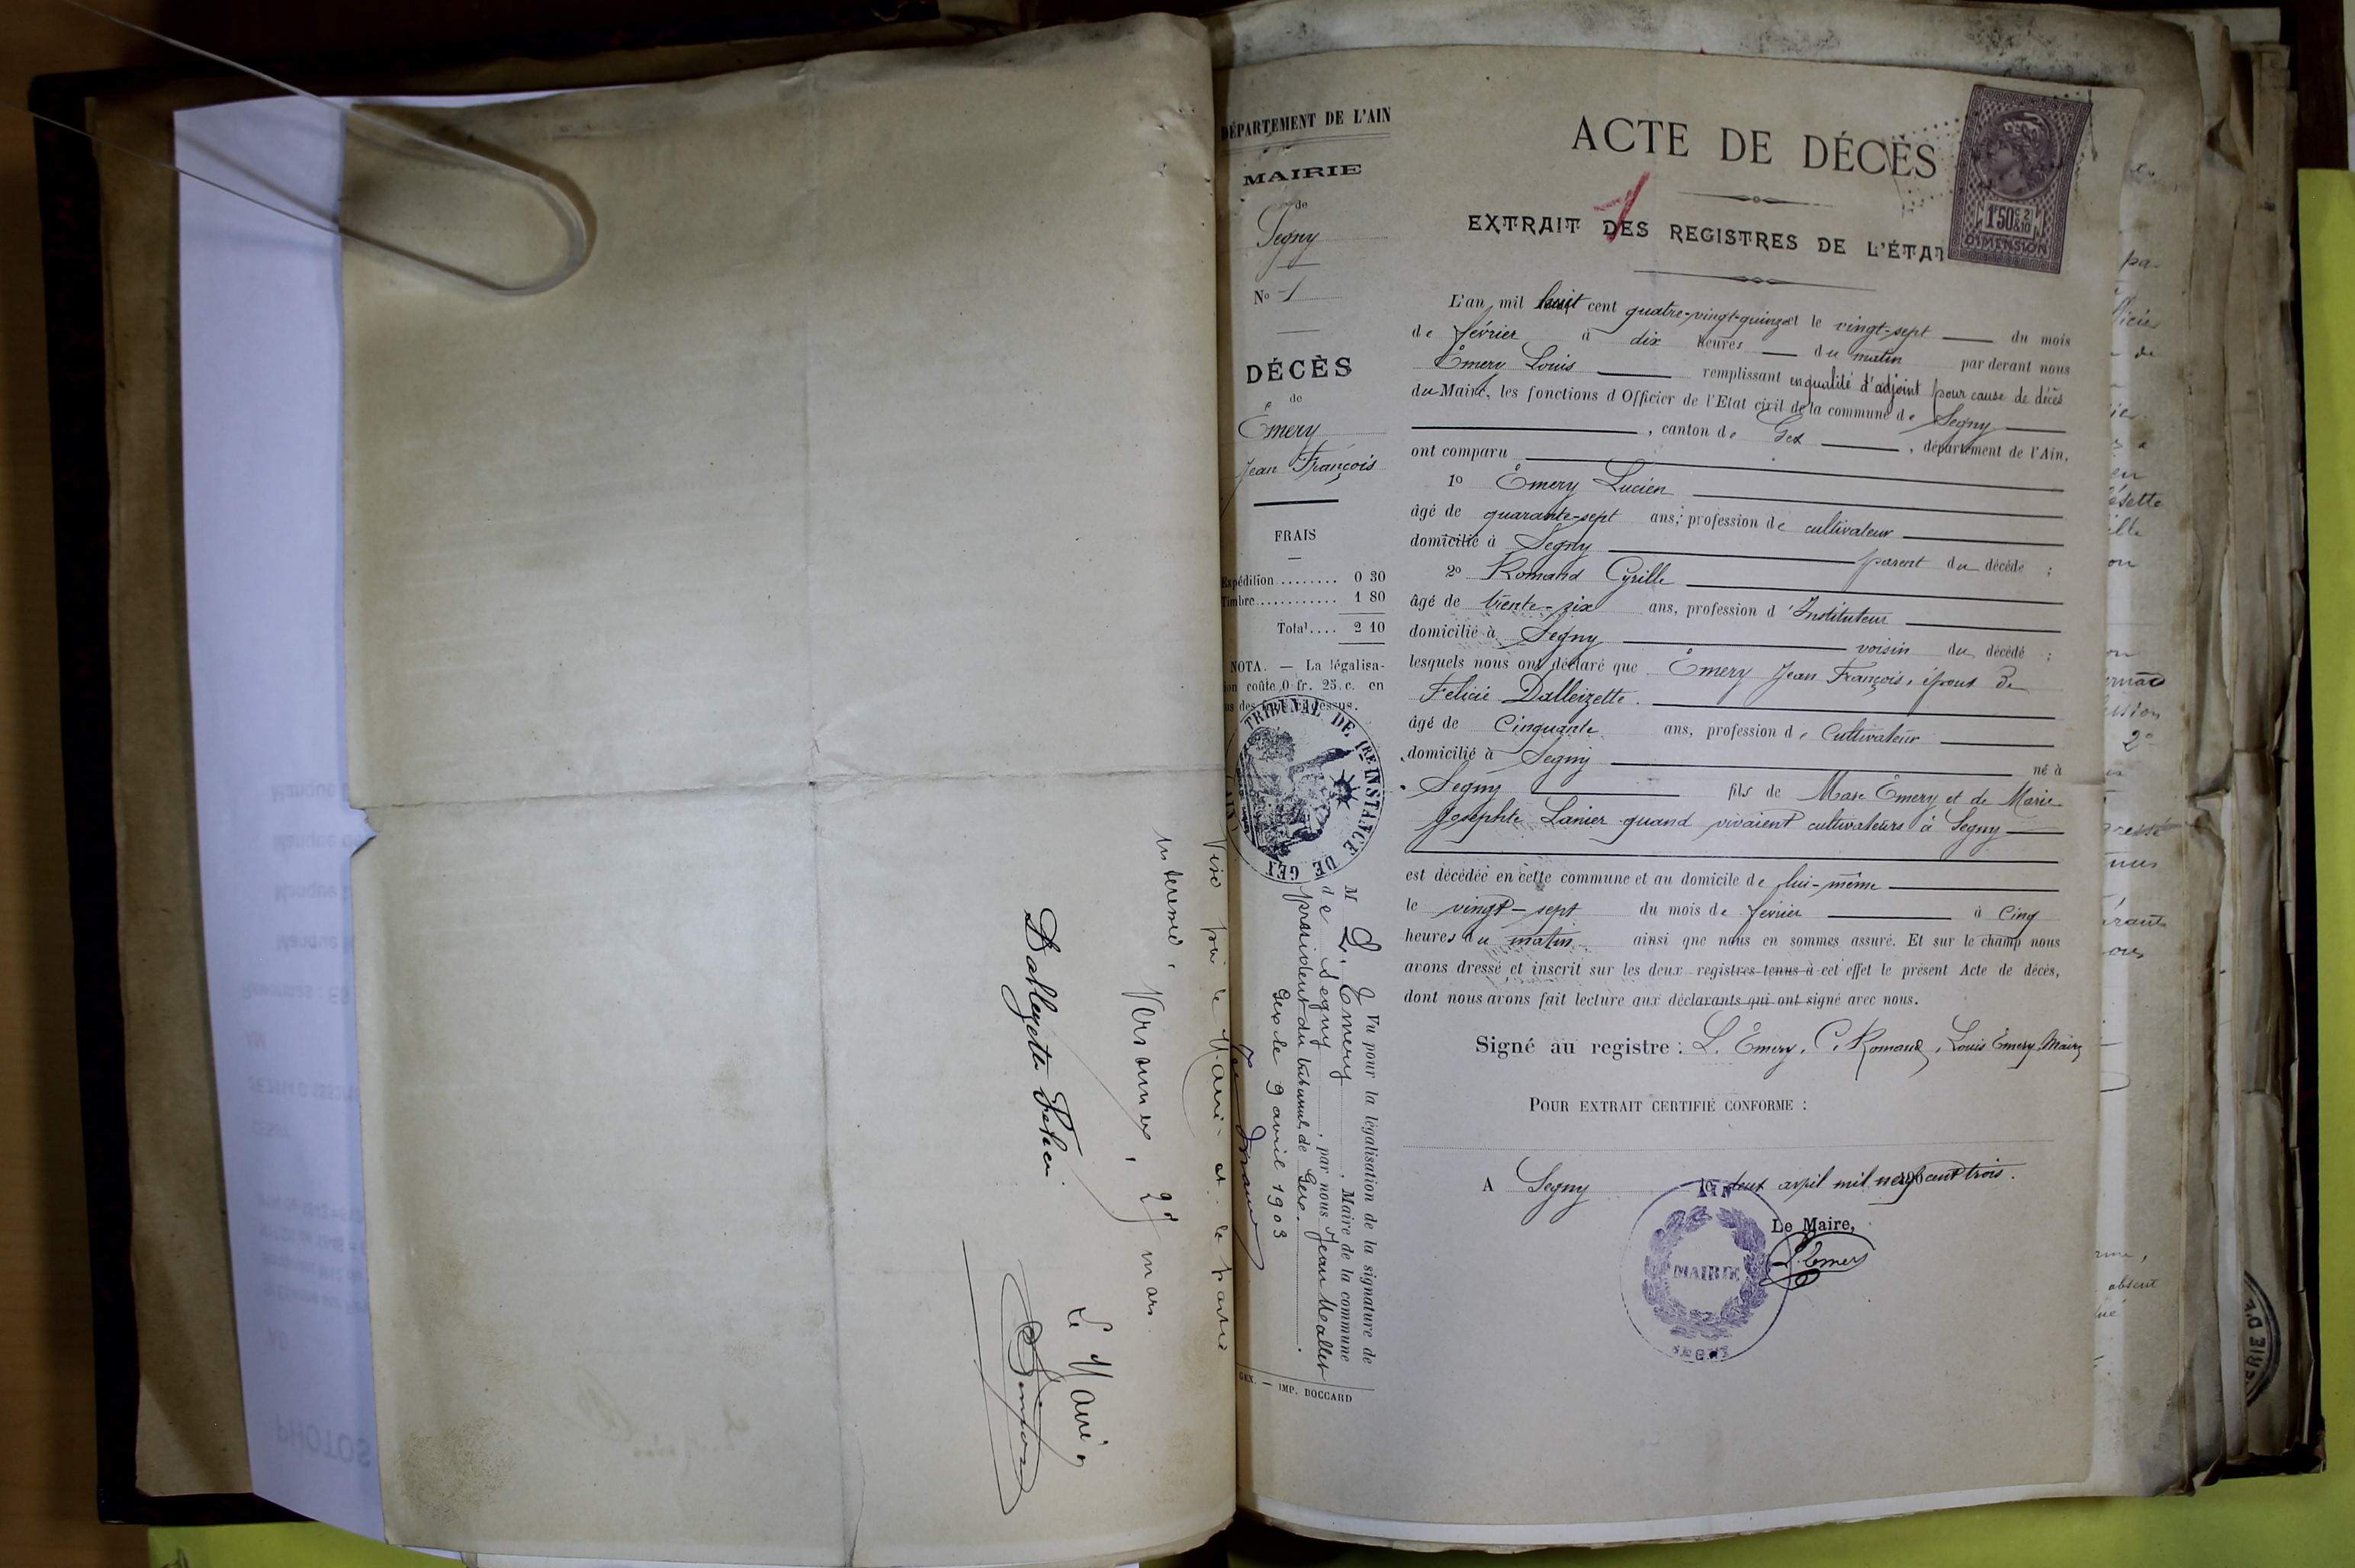 Visé par le Maire et le partie
interessé.
Versonnex, 29 mars
Le Maire,
Dalleyzette Felicie.
DÉPARTEMENT DE L'AIN
MAIRIE
de
Segny
No 1
DÉCÈS
de
Émery
Jean François
FRAIS
Expédition ........ 0 30
Timbre ............ 1 80
Total .... 2 10
NOTA. — La légalisa-
tion coûte 0 fr. 25 c. en
us des frais ci-dessus.
TRIBUNAL DE 1RE INSTANCE DE GEX
AIN
Vu pour la légalisation de la signature de
M L. Emery, Maire de la commune
de Segny, par nous Jean Mallet
président du tribunal de Gex.
Gex le 9 avril 1903
GEX. — IMP. BOCCARD
ACTE DE DÉCÈS
1
EXTRAIT DES REGISTRES DE L'ÉTAT
1f50c 2/10
DIMENSION
L'an mil huit cent quatre-vingt-quinze et le vingt-sept du mois
de février à dix heures du matin par devant nous
Émery Louis remplissant en qualité d'adjoint pour cause de décès
du Maire, les fonctions d'Officier de l'Etat civil de la commune de Segny
, canton de Gex, département de l'Ain,
ont comparu
1o Émery Lucien
âgé de quarante-sept ans; profession de cultivateur
domicilié à Segny parent du décédé ;
2o Romand Cyrille
âgé de trente-six ans, profession d'Instituteur
domicilié à Segny voisin du décédé ;
lesquels nous ont déclaré que Émery Jean François, époux de
Felicie Dalleizette.
âgé de Cinquante ans, profession de Cultivateur
domicilié à Segny né à
Segny fils de Marc Émery et de Marie
Josephte Lanier quand vivaient cultivateurs à Segny
est décédée en cette commune et au domicile de lui-même
le vingt-sept du mois de février à Cinq
heures du matin ainsi que nous en sommes assuré. Et sur le champ nous
avons dressé et inscrit sur les deux registres tenus à cet effet le présent Acte de décès,
dont nous avons fait lecture aux déclarants qui ont signé avec nous.
Signé au registre : L. Émery, C. Romand, Louis Émery Maire
POUR EXTRAIT CERTIFIÉ CONFORME :
A Segny le deux avril mil neuf cent trois.
Le Maire,
L. Emery
AIN
MAIRIE
SEGNY